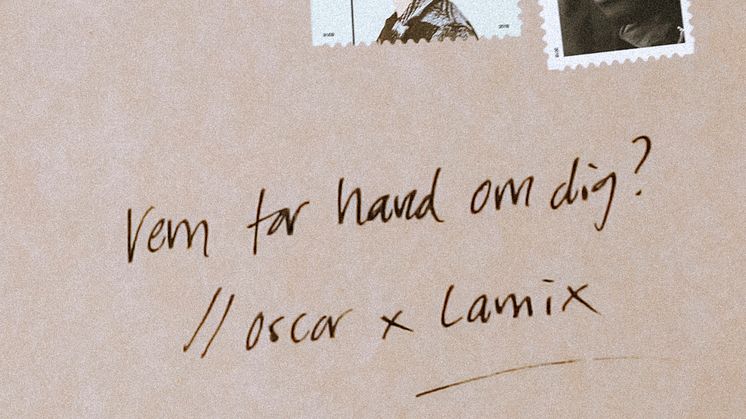 Vem tar hand om dig?
// oscar x Lamix